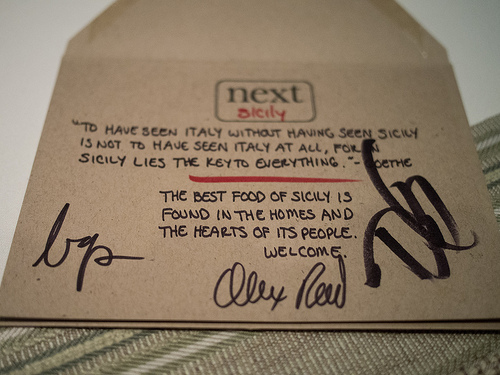 next
sicily
"TO HAVE SEEN ITALY WITHOUT HAVING SEEN SICILY
IS NOT TO HAVE SEEN ITALY AT ALL, FOR IN
SICILY LIES THE KEY TO EVERYTHING."- GOETHE
THE BEST FOOD OF SICILY IS
FOUND IN THE HOMES AND
THE HEARTS OF ITS PEOPLE.
WELCOME.
Alex Reed